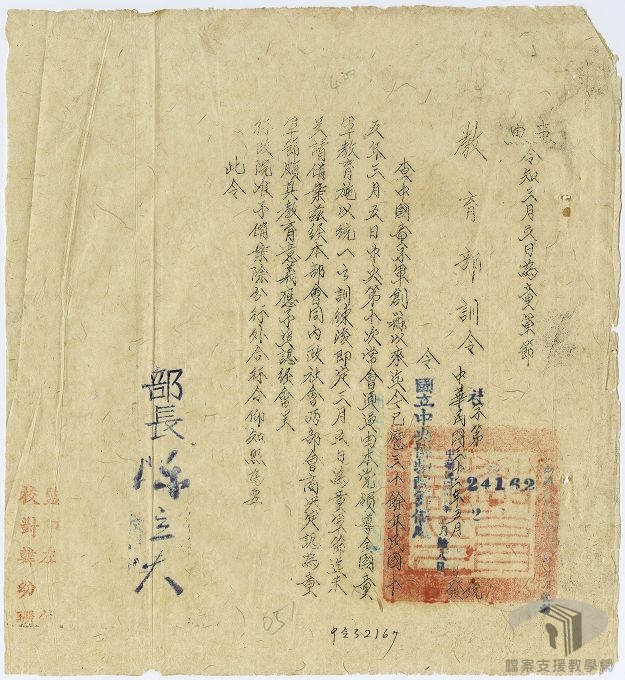 事由
令知三月五日為童軍節
教育部訓令
社字第 24162
中華民國三十二年五月
令
國立中央博物院籌備處
查中國童子軍創辦以來迄今已歷三十餘年民國十
五年三月五日中央第十次常會通過由本党領導全國童
軍教育施以統一之訓練後即定三月五日為童軍節迄未
呈請備案茲經本部會同內政社會兩部會商決定認為童
軍節頗具教育意義應予追認經會呈
行政院准予備案除分行外合行令仰知照為要
此令
部長 陳立夫
監印左
校對韓幼珊
05
中立32167
檔案支援教學網